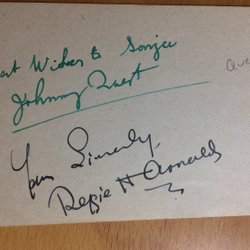 Best Wishes to Sonjee
Johnny Quest
Que
Yours Sincerely,
Regie H Arnolds